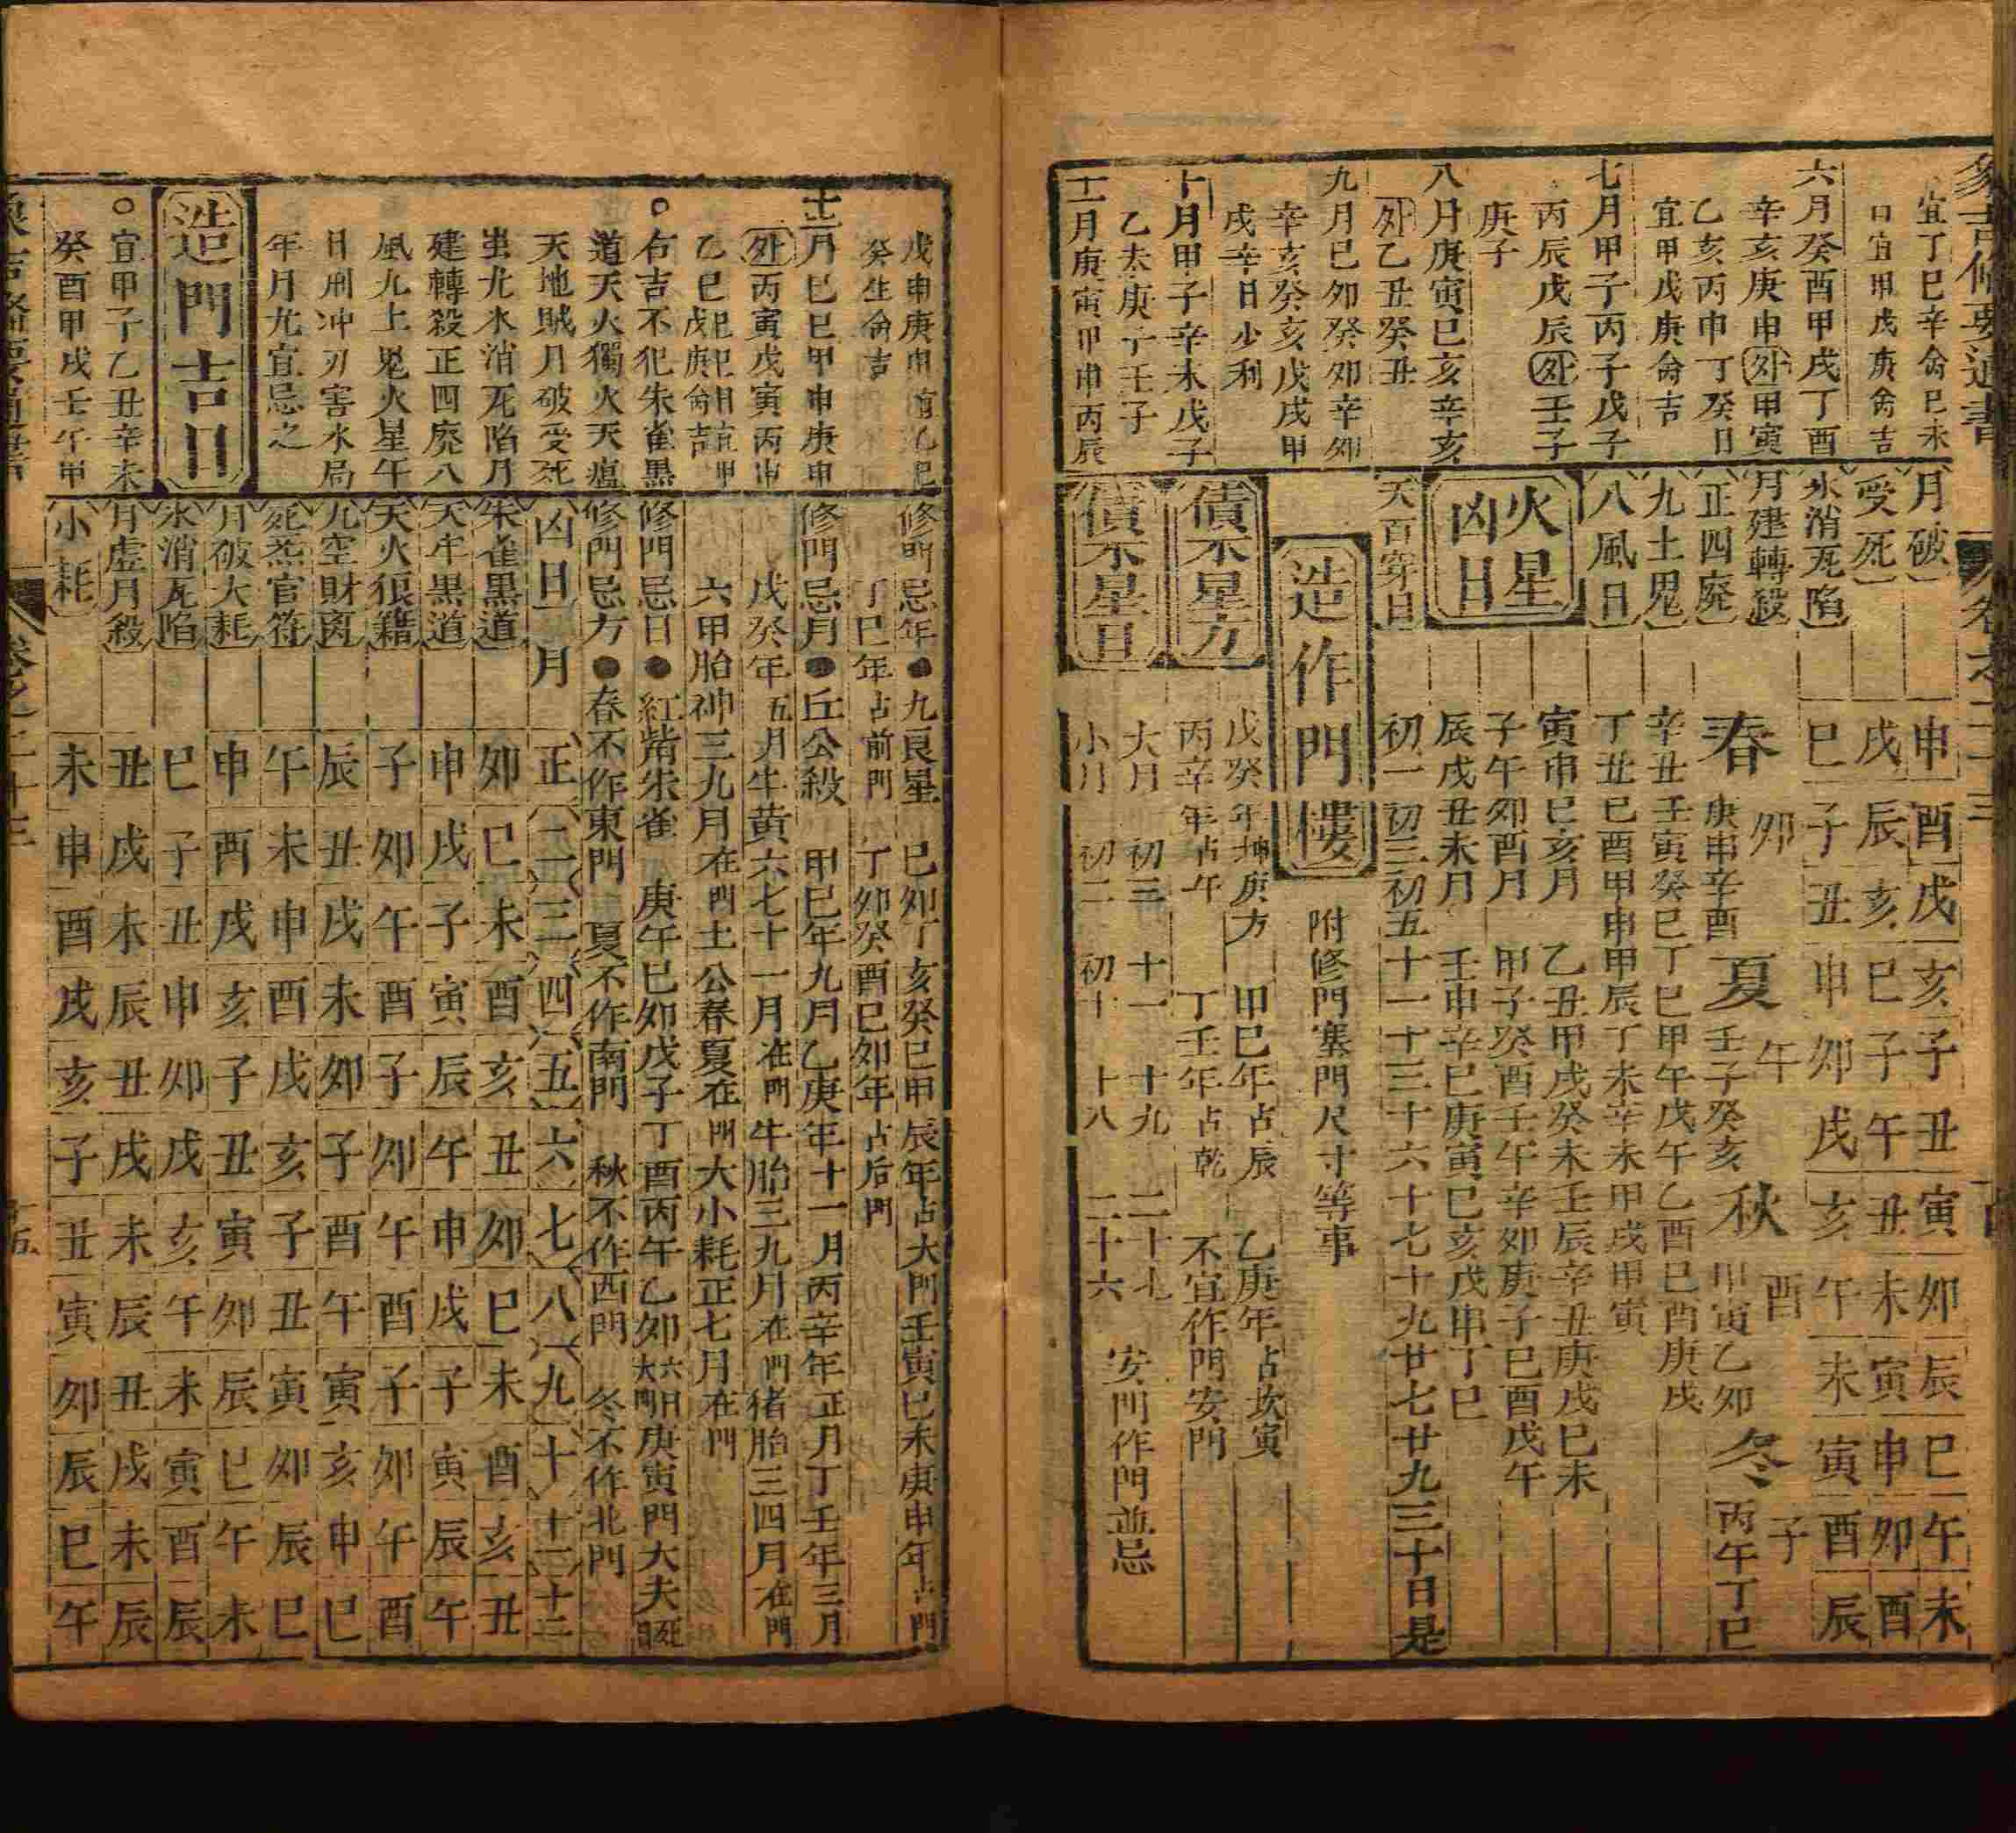 象吉備要通書
卷之二十三
宜丁巳辛酓巳未
日宜甲戊庚酓吉
六月癸酉甲戌丁酉
辛亥庚申外甲寅
乙亥丙申丁癸日
宜甲戊庚酓吉
七月甲子丙子戊子
丙辰戊辰外壬子
庚子
八月庚寅巳亥辛亥
外乙丑癸丑
九月巳夘癸夘辛夘
辛亥癸亥戊戌甲
戌辛日少利
十月甲子辛未戊子
乙未庚子壬子
十一月庚寅甲申丙辰
月破 申酉戌亥子丑寅卯辰巳午未
受死 戌辰亥巳子午丑未寅申卯酉
氷消瓦陷 巳子丑申卯戌亥午未寅酉辰
月建轉殺 春 夘 夏 午 秋 酉 冬 子
正四廢 庚申辛酉 壬子癸亥 甲寅乙夘 丙午丁巳
九土鬼 辛丑壬寅癸巳丁巳甲午戊午乙酉巳酉庚戌
八風日 丁丑巳酉甲申甲辰丁未辛未甲戌甲寅
火星凶日
寅申巳亥月 乙丑甲戌癸未壬辰辛丑庚戌巳未
子午夘酉月 甲子癸酉壬午辛夘庚子巳酉戊午
辰戌丑未月 壬申辛巳庚寅巳亥戊申丁巳
天百穿日 初一初三初五十一十三十六十七十九廿七廿九三十日是
造作門樓 附修門塞門尺寸等事
債不星方 戊癸年坤庚方 甲巳年占辰 乙庚年占坎寅
丙辛年占午 丁壬年占乾 不宜作門安門
債不星日 大月 初三 十一 十九 二十七
小月 初二 初十 十八 二十六 安門作門並忌
癸生酓吉
十二月巳巳甲申甲庚申
外丙寅戊寅丙申
右吉不犯朱雀黒
道天火獨火天瘟
天地賊月破受死
氷消瓦陷月
建轉殺正四廢八
風九土鬼火星午
日刑冲刃害水局
年月尤宜忌之
造門吉日
宜甲子乙丑辛未
癸酉甲戌壬午甲
修門忌年●九良星 巳夘丁亥癸巳甲辰年占大門壬寅巳未庚申年占門
丁巳年占前門 丁夘癸酉巳夘年占后門
修門忌月●丘公殺 甲巳年九月乙庚年十一月丙辛年正月丁壬年三月
戊癸年五月牛黄六七十一月在門牛胎三九月在門猪胎三四月在門
六甲胎神三九月在門土公春夏在門大小耗正七月在門
修門忌日●紅觜朱雀 庚午巳夘戊子丁酉丙午乙夘六甲日大門庚寅門大夫死日
修門忌方●春不作東門 夏不作南門 秋不作西門 冬不作北門
凶日 月 正二三四五六七八九十十一十二
朱雀黒道 夘巳未酉亥丑夘巳未酉亥丑
天牢黒道 申戌子寅辰午申戌子寅辰午
天火狼籍 子夘午酉子夘午酉子夘午酉
九空財离 辰丑戌未夘子酉午寅亥申巳
死炁官符 午未申酉戌亥子丑寅夘辰巳
月破大耗 申酉戌亥子丑寅夘辰巳午未
氷消瓦陷 巳子丑申夘戌亥午未寅酉辰
月虚月殺 丑戌未辰丑戌未辰丑戌未辰
小耗 未申酉戌亥子丑寅夘辰巳午
卷之二十三